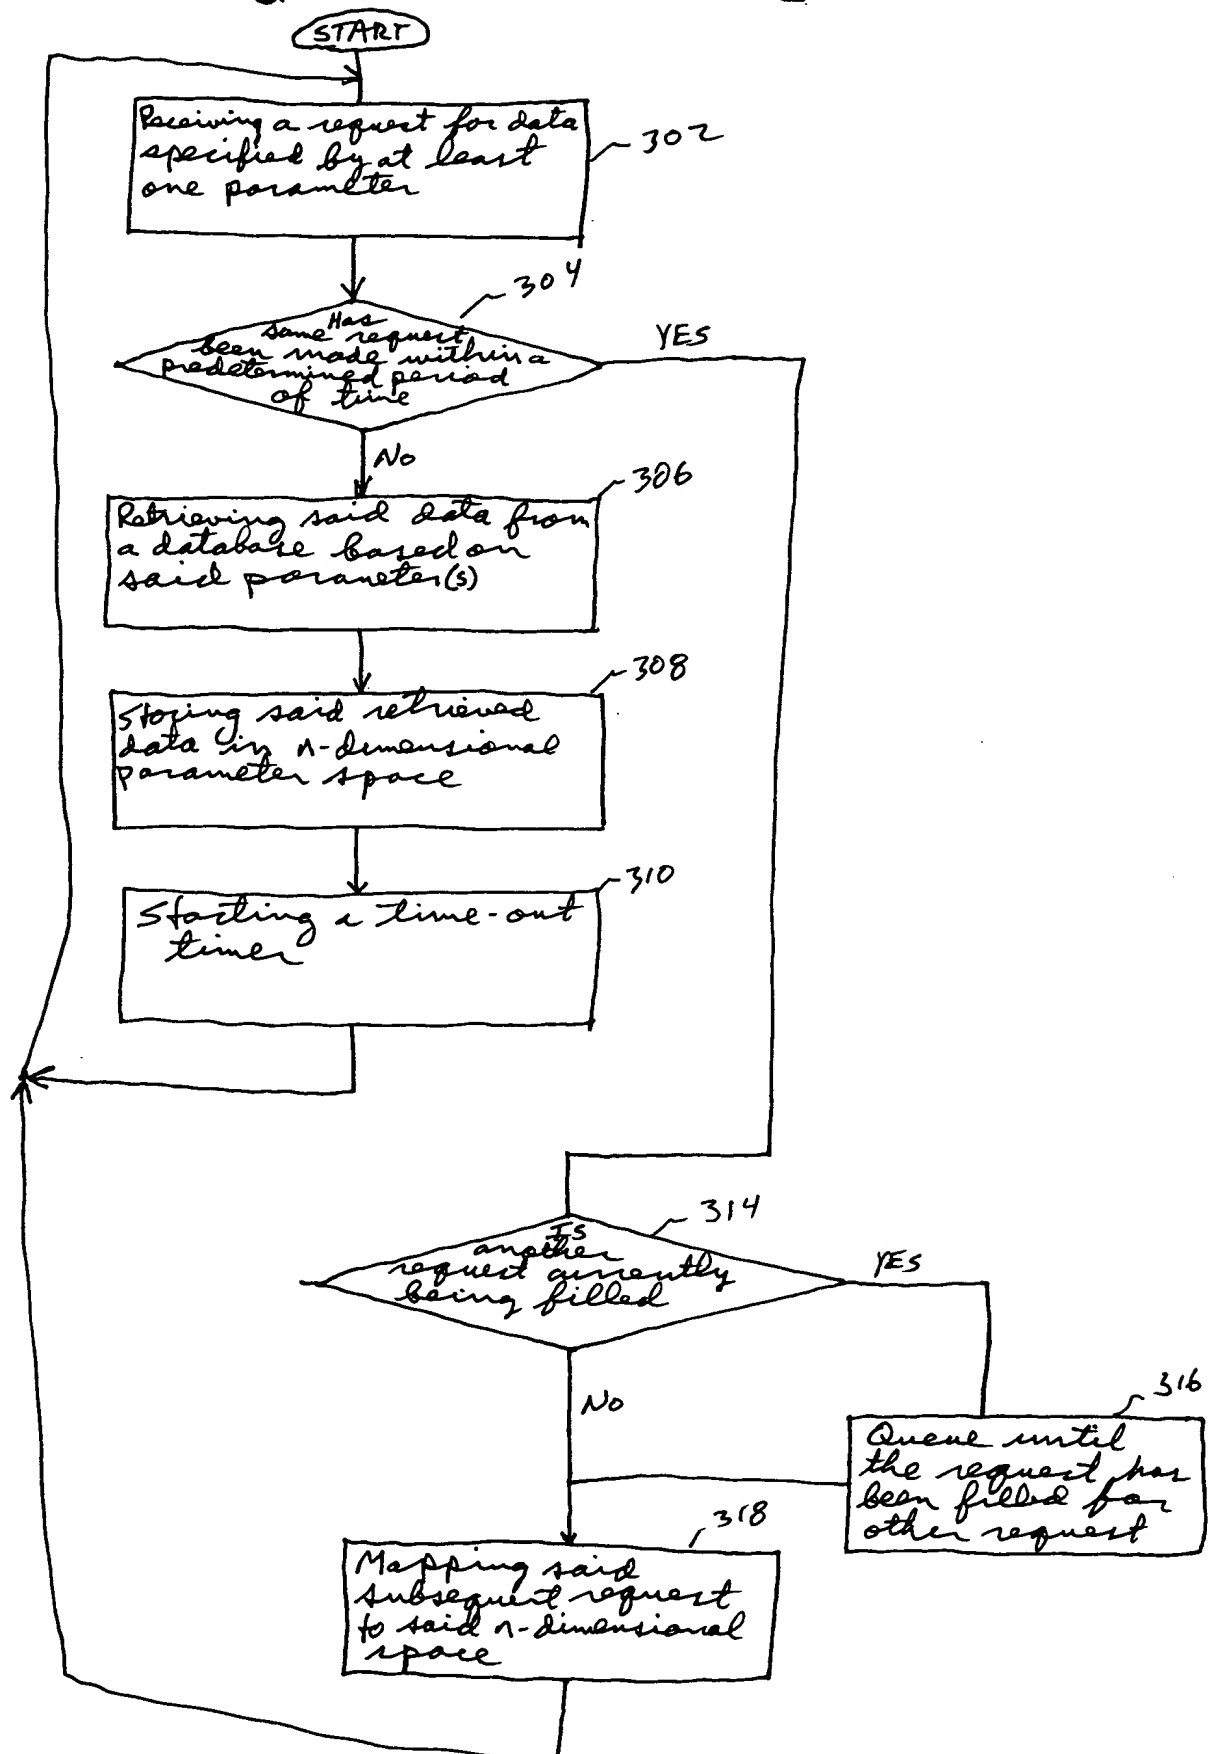 START
Receiving a request for data
specified by at least
one parameter
302
304
Has
same request
been made within a
predetermined period
of time
YES
No
306
Retrieving said data from
a database based on
said parameter(s)
308
Storing said retrieved
data in n-dimensional
parameter space
310
Starting a time-out
timer
314
Is
another
request currently
being filled
YES
No
316
Queue until
the request has
been filled for
other request
318
Mapping said
subsequent request
to said n-dimensional
space